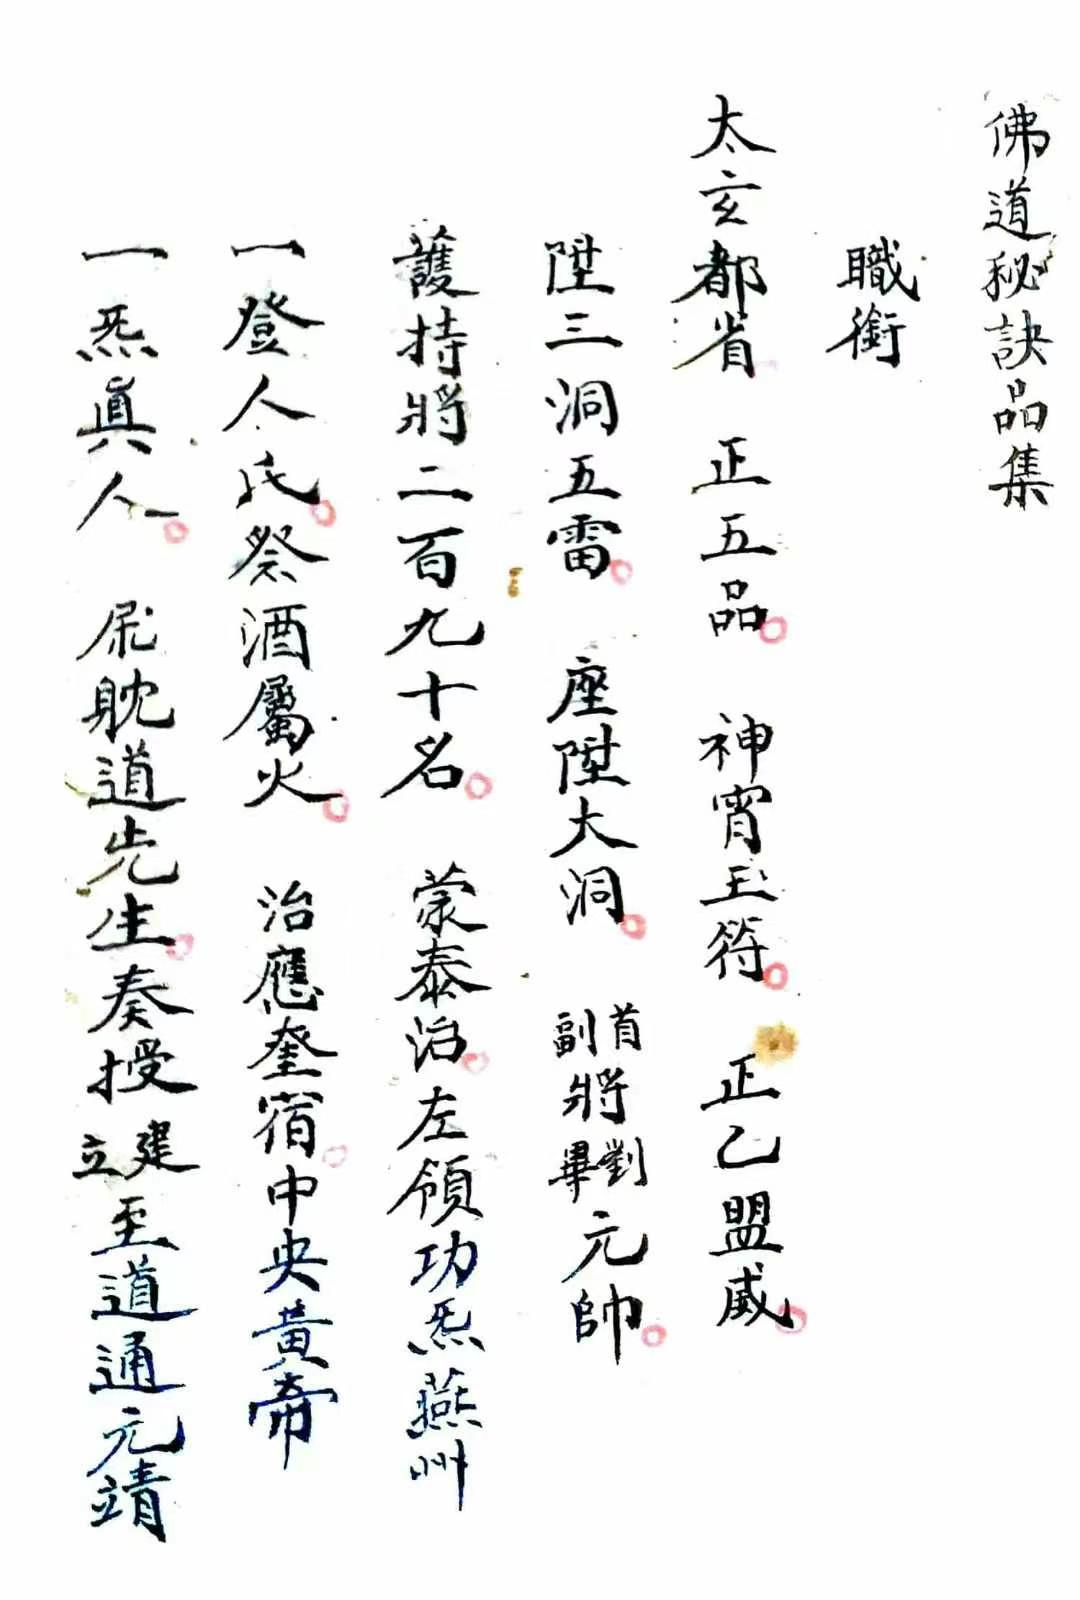 佛道秘訣品集
職銜
太玄都省 正五品 神宵玉符 正乙盟威
陞三洞五雷 座陞大洞 首副將劉畢元帥
護持將二百九十名 蒙泰治左領功炁燕州
一登人氏祭酒屬火 治應奎宿中央黃帝
一炁真人 躭道先生奏授 建立至道通元靖